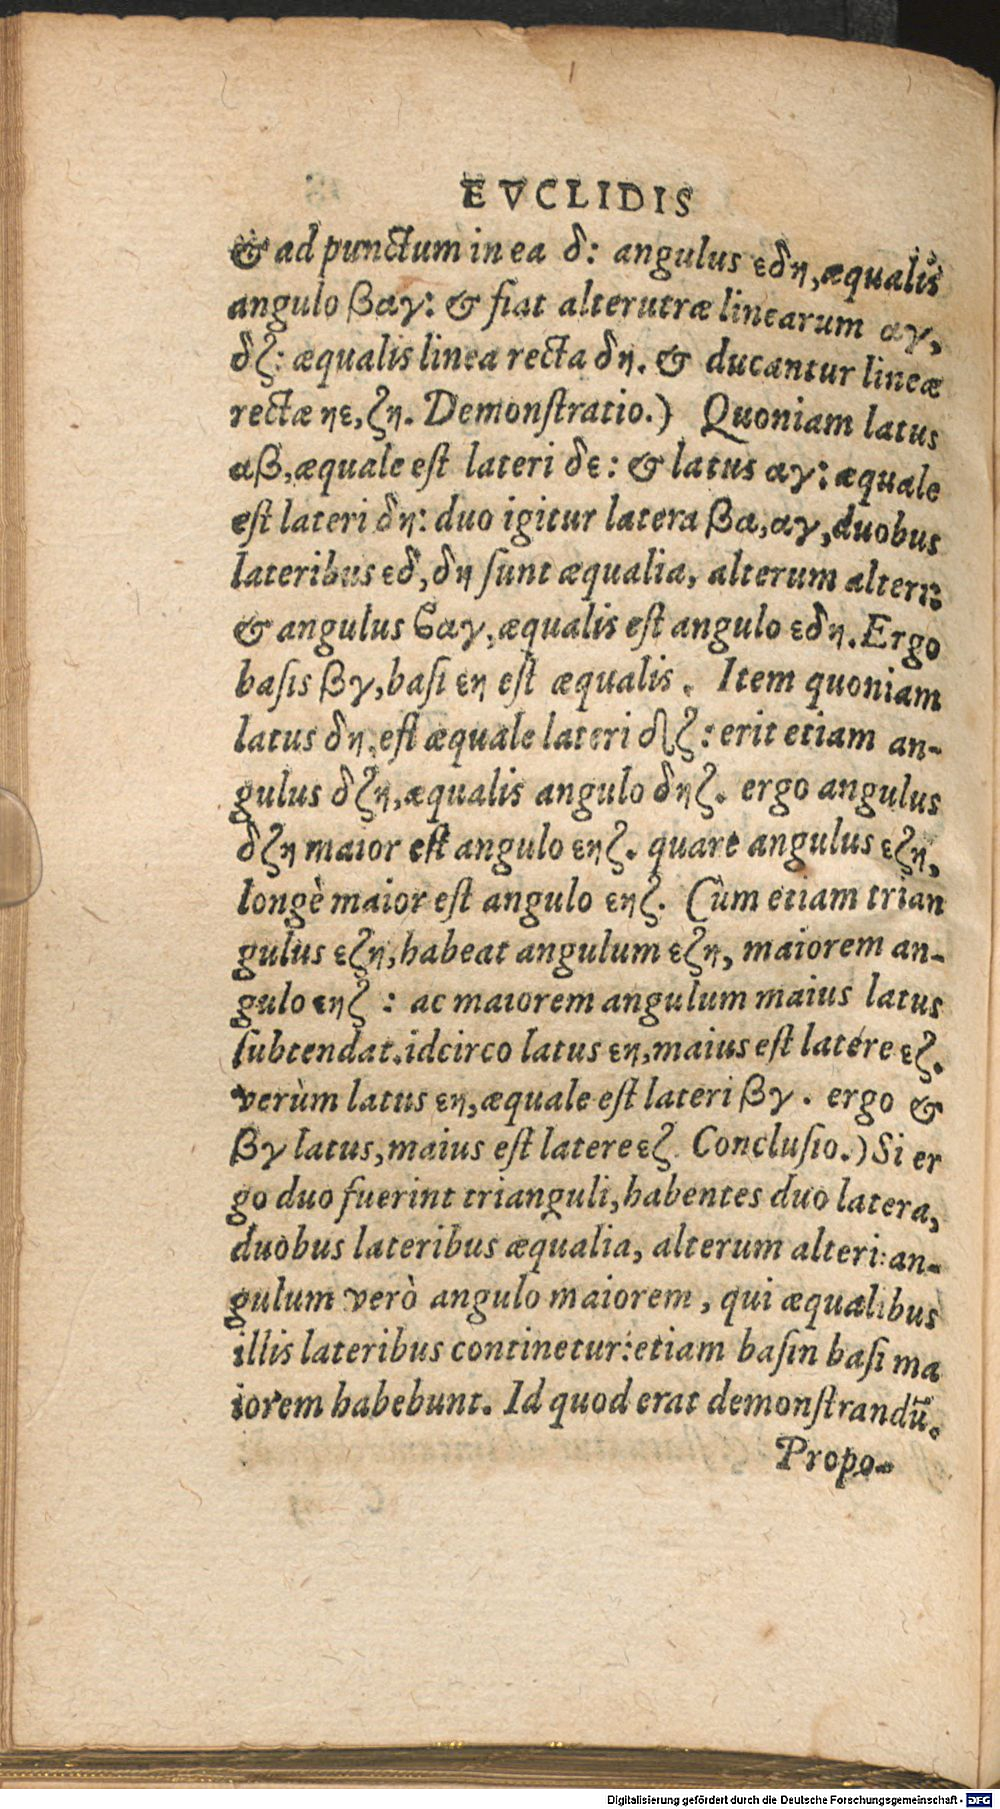 EVCLIDIS
& ad punctum in ea δ: angulus εδη, æqualis
angulo βαγ: & fiat alterutræ linearum αγ,
δζ: æqualis linea recta δη. & ducantur lineæ
rectæ ηε, ζη. Demonſtratio.) Quoniam latus
αβ, æquale eſt lateri δε: & latus αγ: æquale
eſt lateri δη: duo igitur latera βα, αγ, duobus
lateribus εδ, δη ſunt æqualia, alterum alteri:
& angulus ϐαγ, æqualis eſt angulo εδη. Ergo
baſis βγ, baſi εη eſt æqualis. Item quoniam
latus δη, eſt æquale lateri δζ: erit etiam an-
gulus δζη, æqualis angulo δηζ. ergo angulus
δζη maior eſt angulo εηζ. quare angulus εζη,
longè maior eſt angulo εηζ. Cùm etiam trian
gulus εζη, habeat angulum εζη, maiorem an-
gulo εηζ: ac maiorem angulum maius latus
ſubtendat. idcirco latus εη, maius eſt latere εζ.
verùm latus εη, æquale eſt lateri βγ. ergo &
βγ latus, maius eſt latere εζ. Concluſio.) Si er
go duo fuerint trianguli, habentes duo latera,
duobus lateribus æqualia, alterum alteri: an-
gulum verò angulo maiorem, qui æqualibus
illis lateribus continetur: etiam baſin baſi ma
iorem habebunt. Id quod erat demonſtrandū.
Propo-
Digitalisierung gefördert durch die Deutsche Forschungsgemeinschaft - DFG